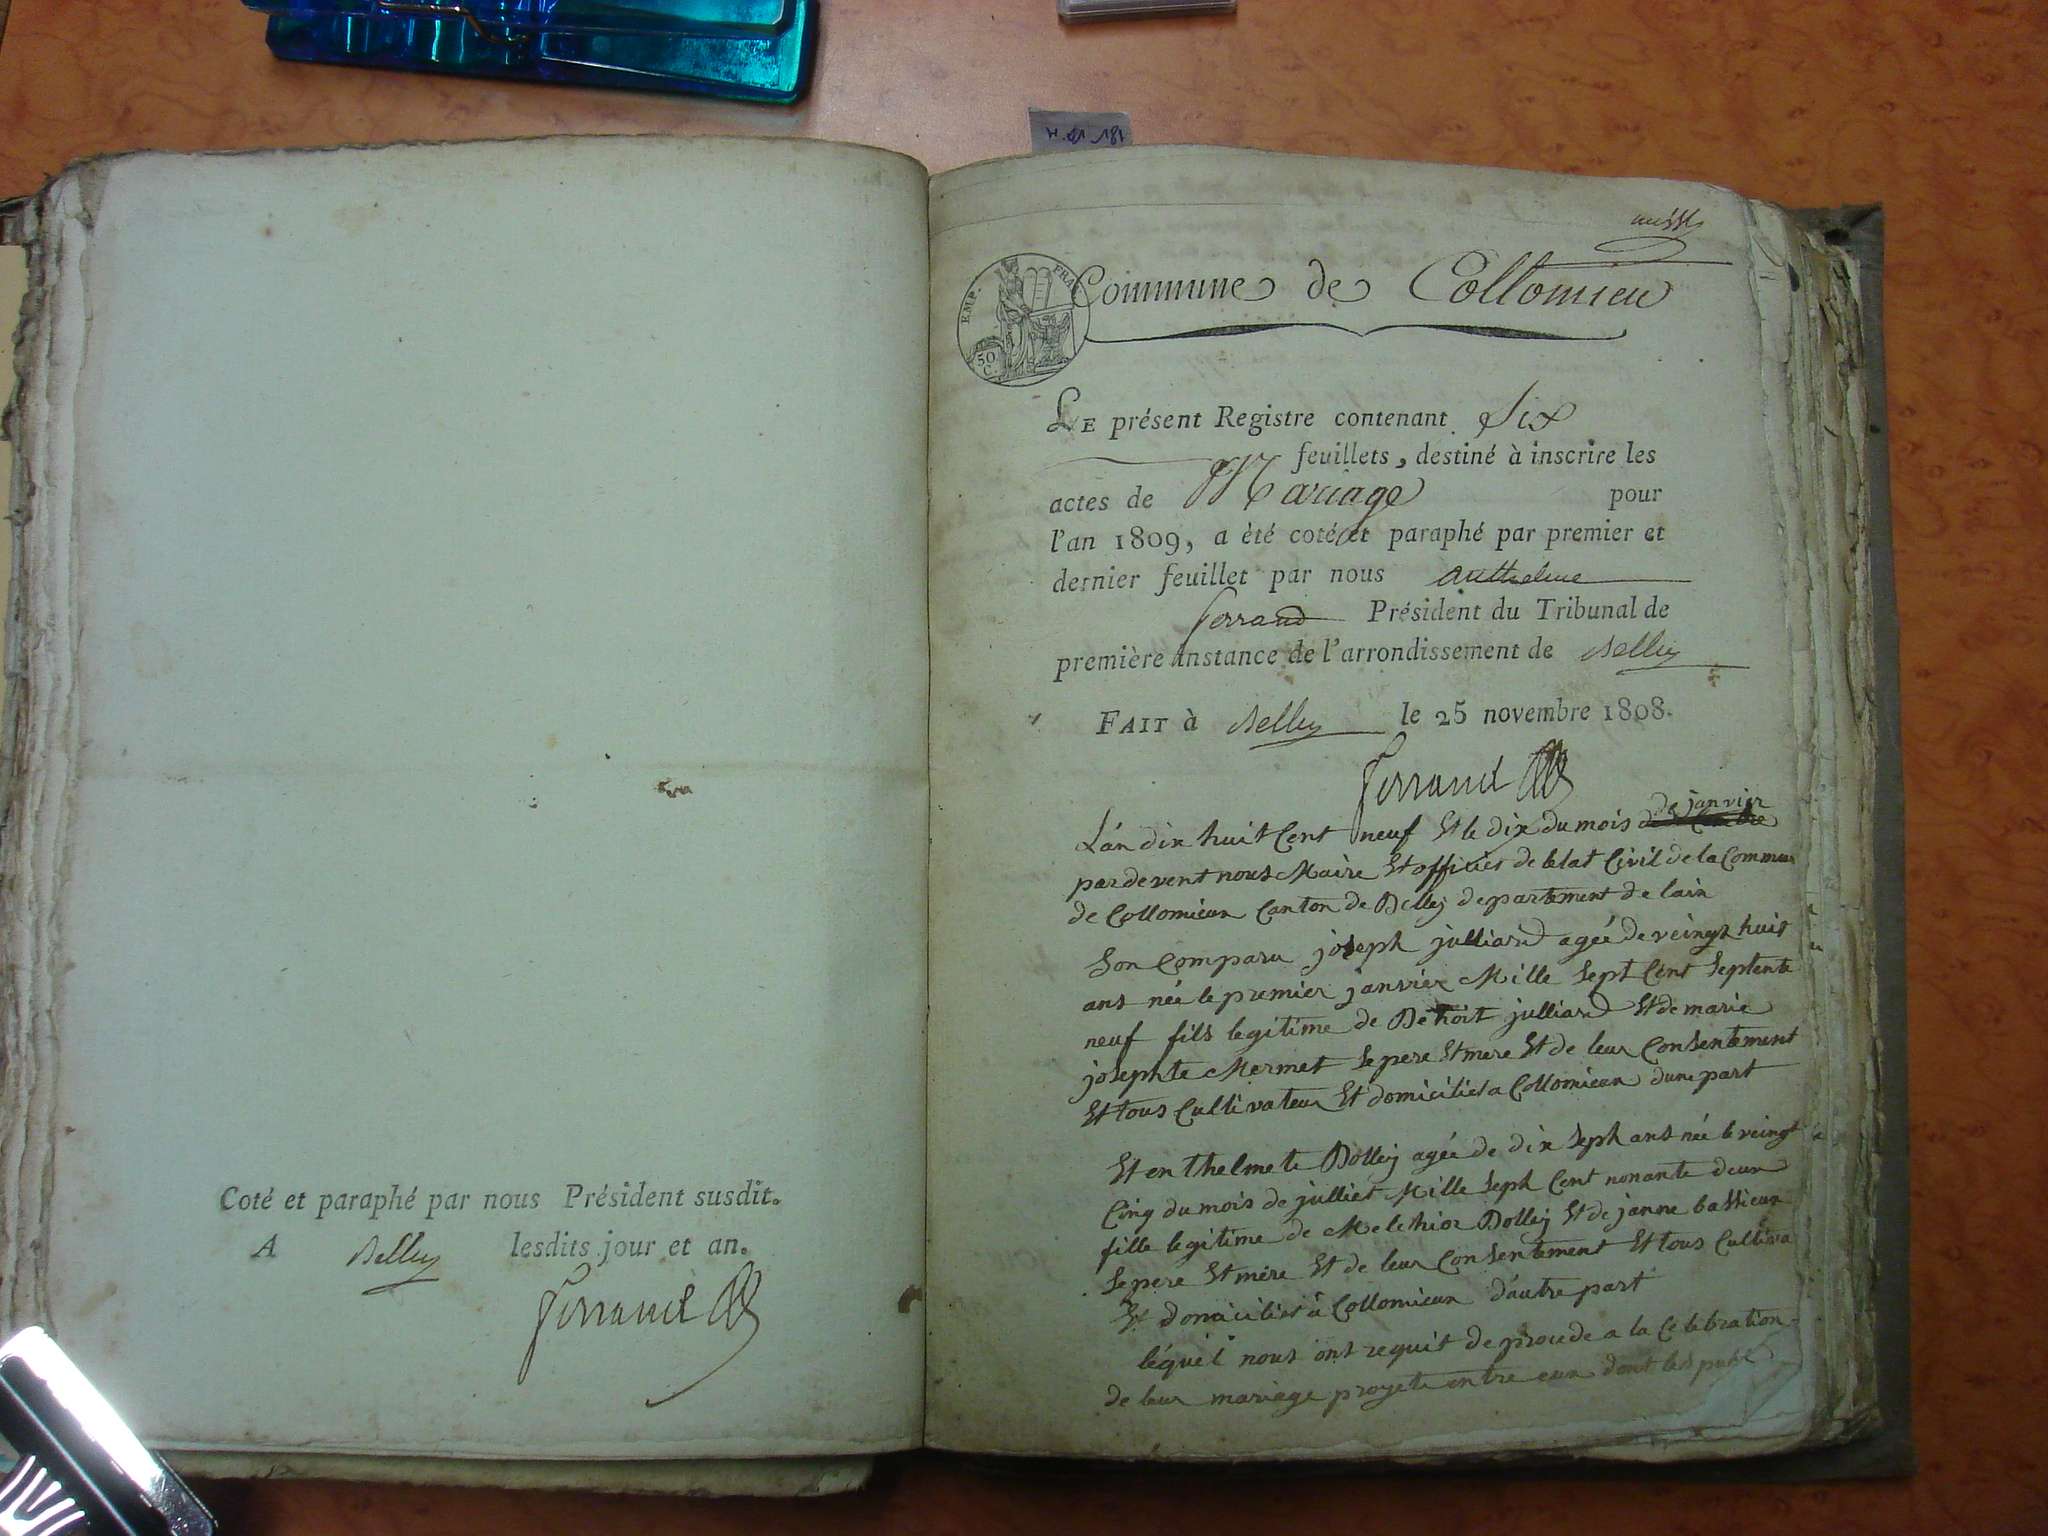 Coté et paraphé par nous Président susdit.
A Belley lesdits jour et an.
Ferrand
EMP. FRA
50
C.
Commune de Collomieu
LE présent Registre contenant Six
feuillets, destiné à inscrire les
actes de Mariage pour
l'an 1809, a èté coté et paraphé par premier et
dernier feuillet par nous anthelme
ferrand Président du Tribunal de
première instance de l'arrondissement de Belley
FAIT à Belley le 25 novembre 1808.
Ferrand
de janvier
L'an dix huit Cent neuf Et le dix du mois
par devent nous Maire Et officier de letat Civil de la Commun
de Collomieux Canton de Belley departement de lain
Son Comparu joseph julliard agée de veingt huit
ans née le premier janvier Mille Sept Cent Septente
neuf fils legitime de Benoit julliard Et de marie
josephte Mermet Se pere Et mere Et de leur Consentement
Et tous Cultivateur Et domiciliet a Collomieux dune part
Et enthelmete Dolley agée de dix Seph ans née le veingt
Cinq du mois de julliet Mille Seph Cent nonante deux
fille legitime de Melchior Dolley Et de janne bassieux
Se pere Et mère Et de leur Consentement Et tous Cultiva
Et domiciliet à Collomieux d'autre part
léquel nous ont requit de procede a la Celebration
de leur mariage progete entre eux dont les publ